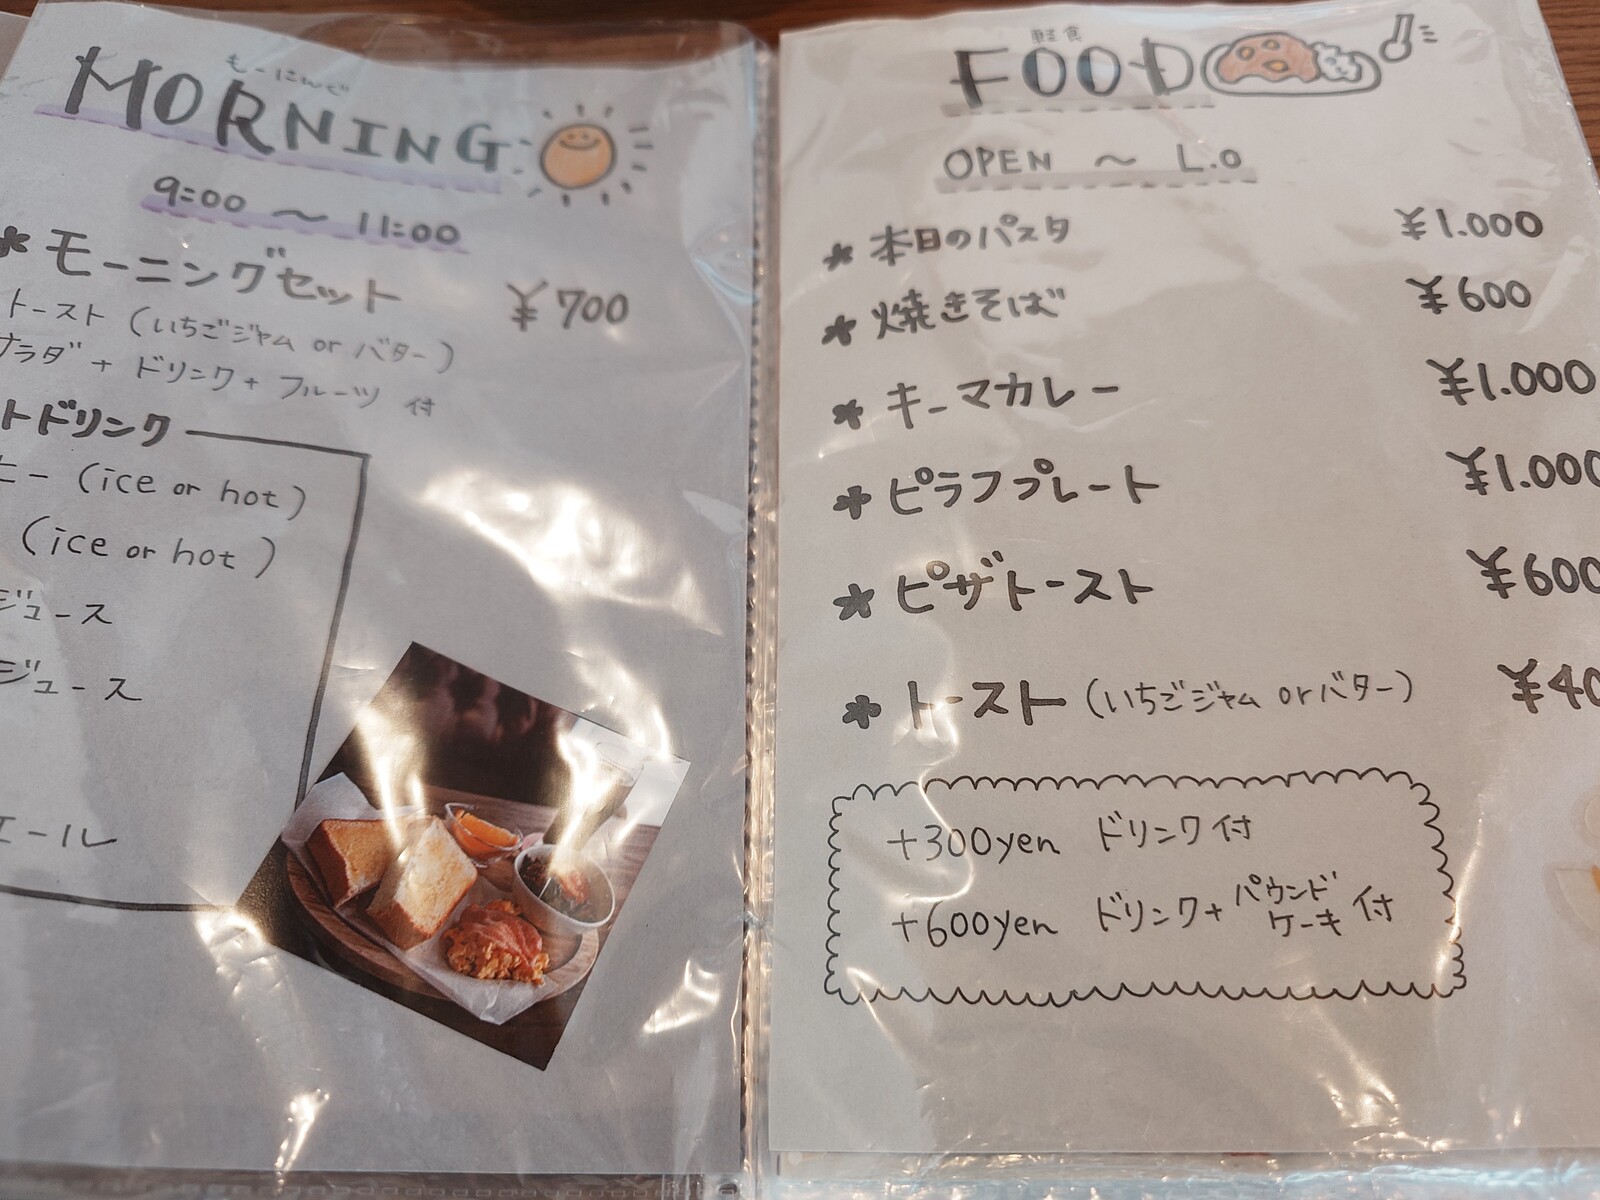 もーにんぐ
MORNING
9:00 ～ 11:00
* モーニングセット ¥700
トースト (いちごジャム or バター)
サラダ + ドリンク + フルーツ 付
トドリンク
ヒー (ice or hot)
(ice or hot)
ジュース
ジュース
エール
軽食
FOOD
OPEN ～ L.O
* 本日のパスタ ¥1.000
* 焼きそば ¥600
* キーマカレー ¥1.000
* ピラフプレート ¥1.000
* ピザトースト ¥600
* トースト (いちごジャム or バター) ¥40
+300yen ドリンク付
+600yen ドリンク+パウンドケーキ付